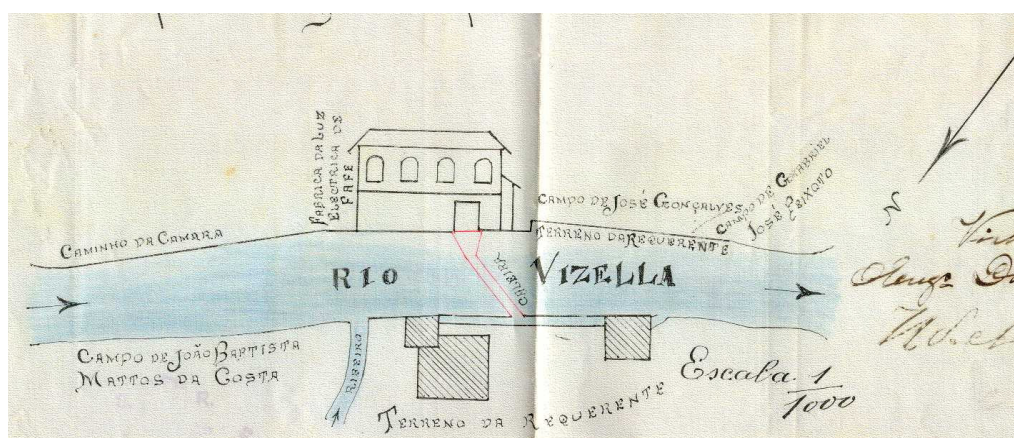 FABRICA DA LUZ
ELECTRICA DE
FAFE
CAMPO DE JOSÉ GONÇALVES
CAMPO DE GABRIEL
JOSÉ PEIXOTO
TERRENO DA REQUERENTE
CAMINHO DA CAMARA
RIO VIZELLA
CALEIRA
N
CAMPO DE JOÃO BAPTISTA
MATTOS DA COSTA
RIBEIRO
TERRENO DA REQUERENTE
Escala 1/1000